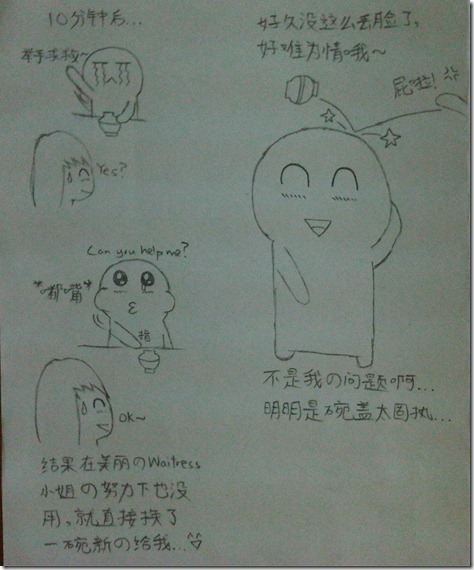 10分钟后...
举手求救~
Yes?
Can you help me?
*嘟嘴*
指
OK~
结果在美丽のWaitress
小姐の努力下也没
用,就直接换了
一碗新の给我...
好久没这么丢脸了,
好难为情哦~
屁啦!
不是我の问题啊...
明明是碗盖太固执...